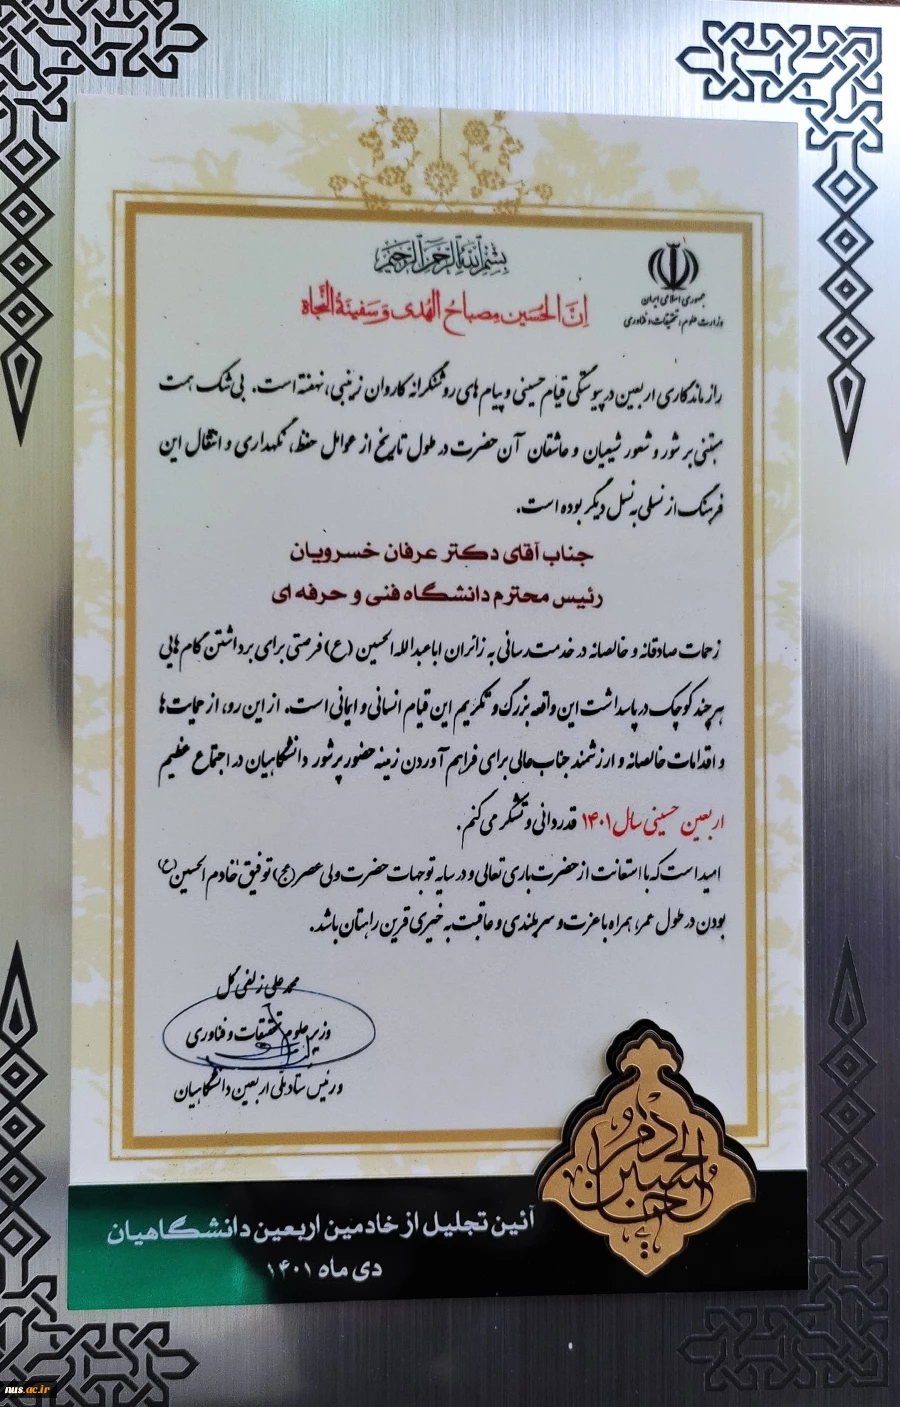 بسم الله الرحمن الرحیم
جمهوری اسلامی ایران
وزارت علوم، تحقیقات و فناوری
اِنَّ الحُسین مِصباحُ الهُدی وَ سَفینَةُ النَّجاة
راز ماندگاری اربعین در پیوستگی قیام حسینی و پیام های روشنگرانه کاروان زینبی، نهفته است. بی شک همت
مبتنی بر شور و شعور شیعیان و عاشقان آن حضرت در طول تاریخ از عوامل حفظ، نگهداری و انتقال این
فرهنگ از نسلی به نسل دیگر بوده است.
جناب آقای دکتر عرفان خسرویان
رئیس محترم دانشگاه فنی و حرفه ای
زحمات صادقانه و خالصانه در خدمت رسانی به زائران اباعبدالله الحسین (ع) فرصتی برای برداشتن گام هایی
هر چند کوچک در پاسداشت این واقعه بزرگ و تکریم این قیام انسانی و ایمانی است. از این رو، از حمایت ها
و اقدامات خالصانه و ارزشمند جناب عالی برای فراهم آوردن زمینه حضور پرشور دانشگاهیان در اجتماع عظیم
اربعین حسینی سال ۱۴۰۱ قدردانی و تشکر می کنم.
امید است که با استعانت از حضرت باری تعالی و در سایه توجهات حضرت ولی عصر (عج) توفیق خادم الحسین (ع)
بودن در طول عمر، همراه با عزت و سربلندی و عاقبت به خیری قرین راهتان باشد.
محمد علی زلفی گل
وزیر علوم، تحقیقات و فناوری
و رئیس ستاد ملی اربعین دانشگاهیان
خادم الحسین
آئین تجلیل از خادمین اربعین دانشگاهیان
دی ماه ۱۴۰۱
nus.ac.ir